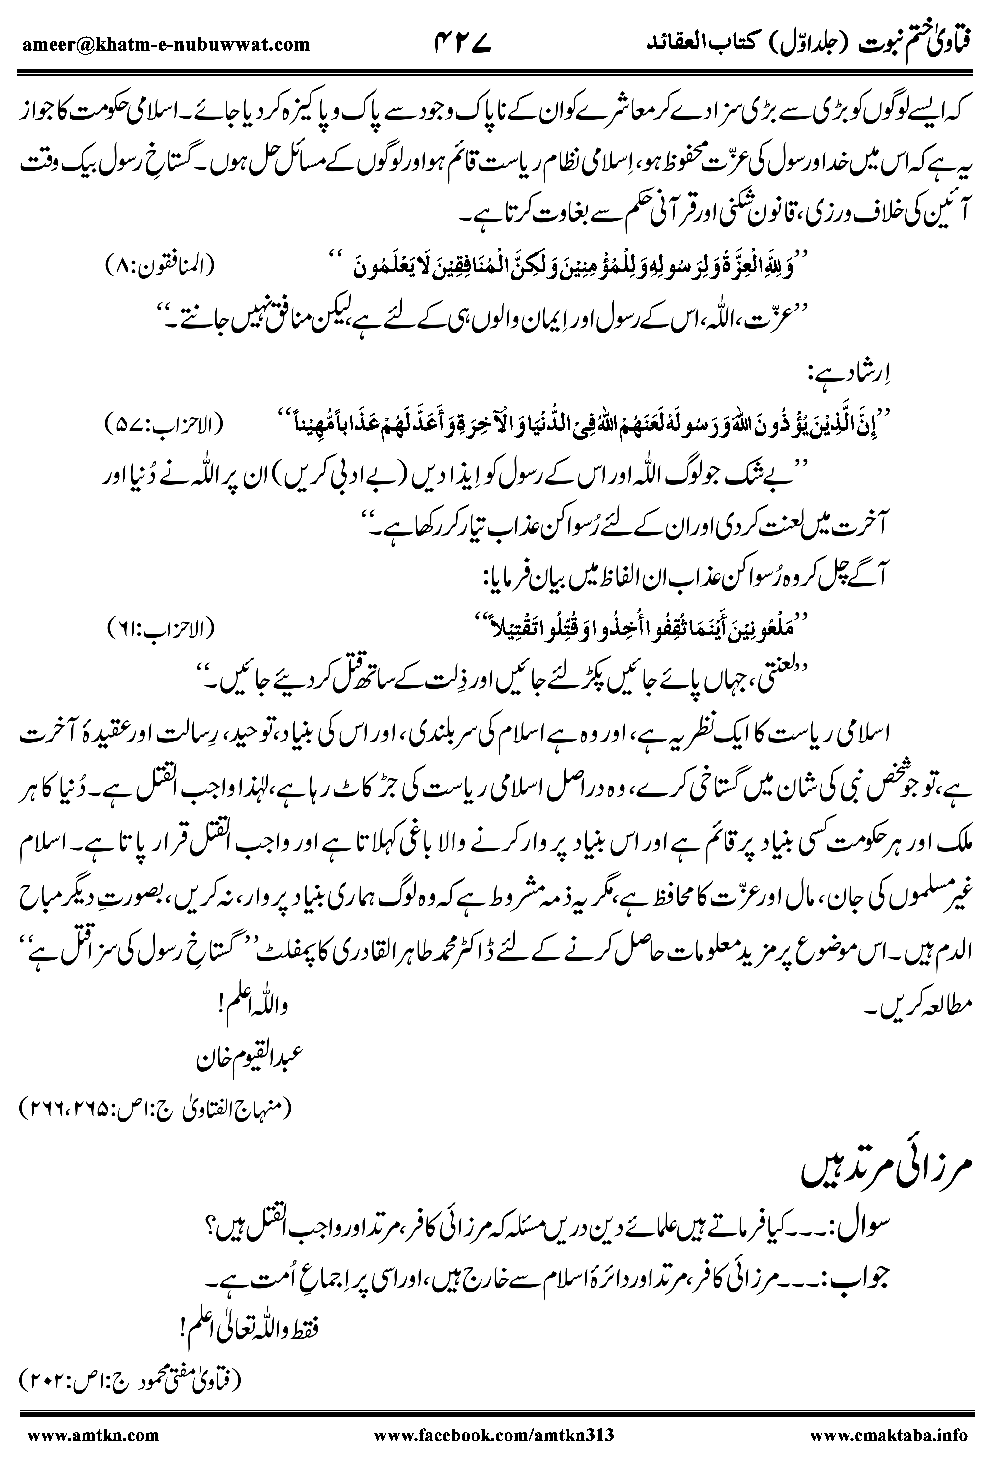 ameer@khatm-e-nubuwwat.com ۴۲۷ فتاویٰ ختم نبوت (جلد اوّل) کتاب العقائد
کہ ایسے لوگوں کو بڑی سے بڑی سزا دے کر معاشرے کو ان کے ناپاک وجود سے پاک و پاکیزہ کر دیا جائے۔ اسلامی حکومت کا جواز
یہ ہے کہ اس میں خدا و رسول کی عزّت محفوظ ہو، اِسلامی نظام ریاست قائم ہو اور لوگوں کے مسائل حل ہوں۔ گستاخِ رسول بیک وقت
آئین کی خلاف ورزی، قانون شکنی اور قرآنی حکم سے بغاوت کرتا ہے۔
’’وَلِلّٰهِ الْعِزَّةُ وَلِرَسُوْلِهٖ وَلِلْمُؤْمِنِیْنَ وَلٰکِنَّ الْمُنَافِقِیْنَ لَا یَعْلَمُوْنَ‘‘ (المنافقون:۸)
’’عزّت، اللہ، اس کے رسول اور اِیمان والوں ہی کے لئے ہے، لیکن منافق نہیں جانتے۔‘‘
اِرشاد ہے:
’’إِنَّ الَّذِیْنَ یُؤْذُوْنَ اللّٰهَ وَرَسُوْلَهٗ لَعَنَهُمُ اللّٰهُ فِی الدُّنْیَا وَالْآخِرَةِ وَأَعَدَّ لَهُمْ عَذَاباً مُّهِیْناً‘‘ (الاحزاب:۵۷)
’’بے شک جو لوگ اللہ اور اس کے رسول کو اِیذا دیں (بے ادبی کریں) ان پر اللہ نے دُنیا اور
آخرت میں لعنت کر دی اور ان کے لئے رُسوا کن عذاب تیار کر رکھا ہے۔‘‘
آگے چل کر وہ رُسوا کن عذاب ان الفاظ میں بیان فرمایا:
’’مَلْعُوْنِیْنَ أَیْنَمَا ثُقِفُوا أُخِذُوا وَقُتِّلُوا تَقْتِیْلاً‘‘ (الاحزاب:۶۱)
’’لعنتی، جہاں پائے جائیں پکڑ لئے جائیں اور ذِلت کے ساتھ قتل کر دیئے جائیں۔‘‘
اسلامی ریاست کا ایک نظریہ ہے، اور وہ ہے اسلام کی سربلندی، اور اس کی بنیاد، توحید، رِسالت اور عقیدۂ آخرت
ہے، تو جو شخص نبی کی شان میں گستاخی کرے، وہ دراصل اسلامی ریاست کی جڑ کاٹ رہا ہے، لہٰذا واجب القتل ہے۔ دُنیا کا ہر
ملک اور ہر حکومت کسی بنیاد پر قائم ہے اور اس بنیاد پر وار کرنے والا باغی کہلاتا ہے اور واجب القتل قرار پاتا ہے۔ اسلام
غیر مسلموں کی جان، مال اور عزّت کا محافظ ہے، مگر یہ ذمہ مشروط ہے کہ وہ لوگ ہماری بنیاد پر وار، نہ کریں، بصورتِ دیگر مباح
الدم ہیں۔ اس موضوع پر مزید معلومات حاصل کرنے کے لئے ڈاکٹر محمد طاہر القادری کا پمفلٹ ’’گستاخِ رسول کی سزا قتل ہے‘‘
مطالعہ کریں۔ واللہ اعلم!
عبدالقیوم خان
(منہاج الفتاویٰ ج:۱ ص:۲۶۵، ۲۶۶)
مرزائی مرتد ہیں
سوال:۔۔۔ کیا فرماتے ہیں علمائے دین دریں مسئلہ کہ مرزائی کافر، مرتد اور واجب القتل ہیں؟
جواب:۔۔۔ مرزائی کافر، مرتد اور دائرۂ اسلام سے خارج ہیں، اور اسی پر اِجماعِ اُمت ہے۔
فقط واللہ تعالیٰ اعلم!
(فتاویٰ مفتی محمود ج:۱ ص:۲۰۲)
www.amtkn.com www.facebook.com/amtkn313 www.cmaktaba.info